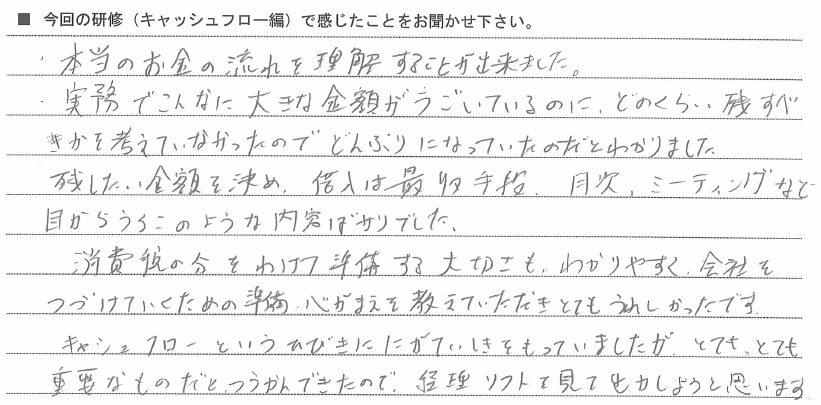 ■ 今回の研修（キャッシュフロー編）で感じたことをお聞かせ下さい。
・本当のお金の流れを理解することが出来ました。
・実務でこんなに大きな金額がうごいているのに、どのくらい残すべ
きかを考えていなかったのでどんぶりになっていたのだとわかりました
残したい金額を決め、借入は最終手段、月次、ミーティングなど
目からうろこのような内容ばかりでした。
消費税の分をわけて準備する大切さも、わかりやすく、会社を
つづけていくための準備、心がまえを教えていただきとてもうれしかったです
キャッシュフローというひびきににがていしきをもっていましたが、とても、とても
重要なものだと、つうかんできたので、経理ソフトで見て出力しようと思います